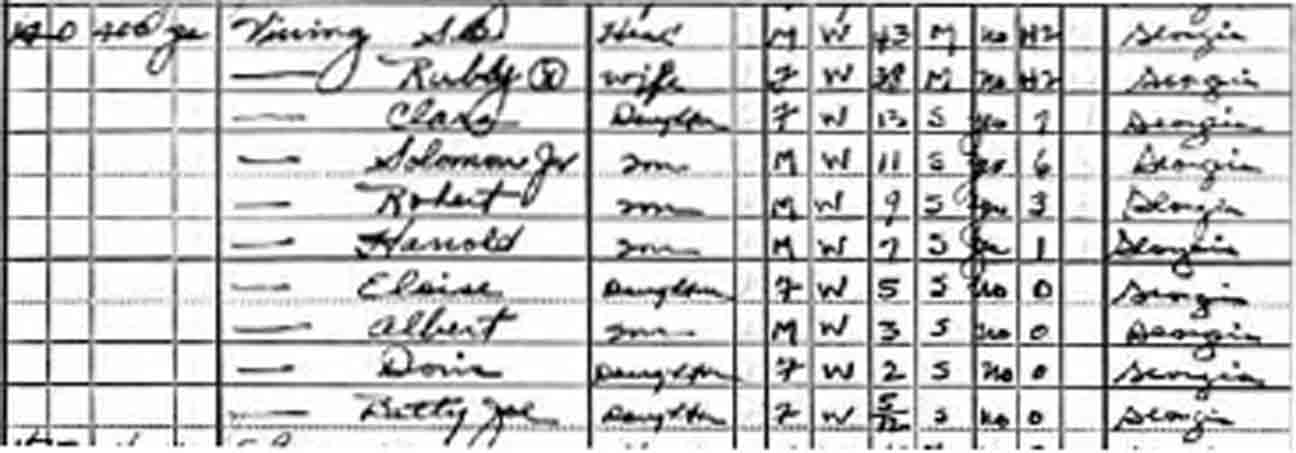 Vining S.B. Head M W 43 M no H2 Georgia
Ruby ⓧ wife F W 38 M no H2 Georgia
Clara Daughter F W 12 S yes 7 Georgia
Solomon Jr son M W 11 S yes 6 Georgia
Robert son M W 9 S yes 3 Georgia
Harold son M W 7 S yes 1 Georgia
Eloise Daughter F W 5 S no 0 Georgia
Albert son M W 3 S no 0 Georgia
Doris Daughter F W 2 S no 0 Georgia
Betty Joe Daughter F W 5/12 S no 0 Georgia